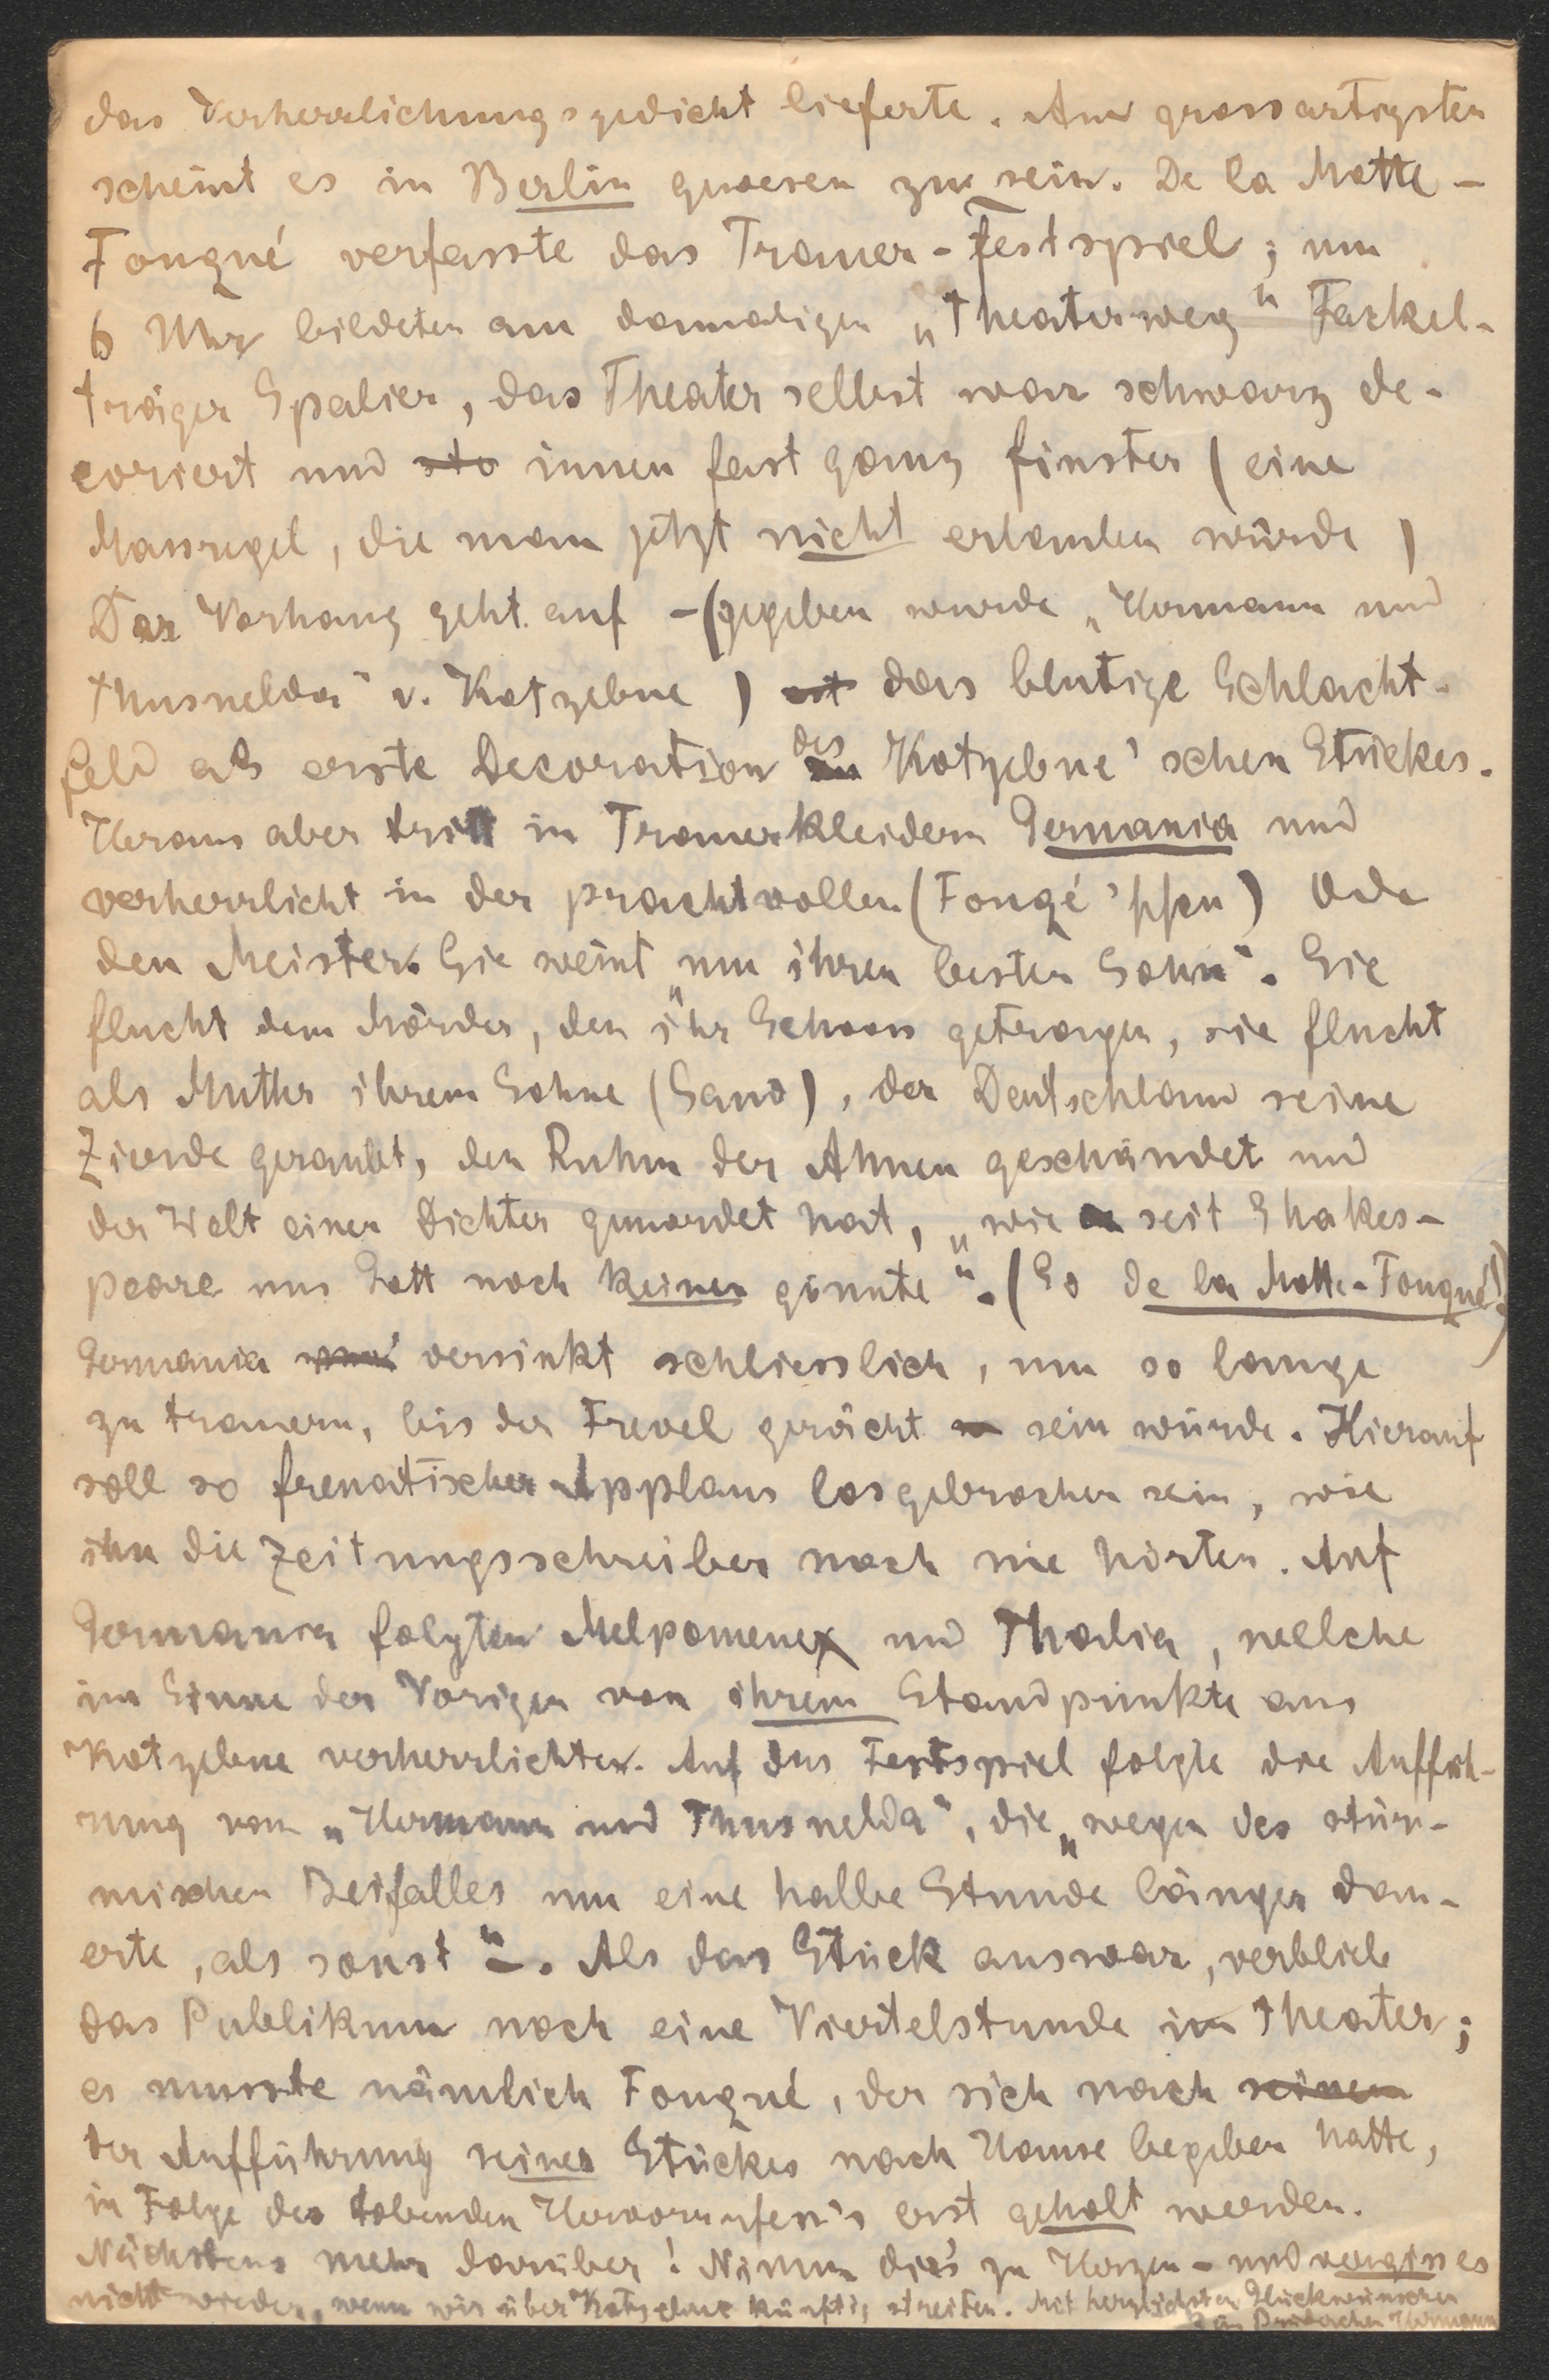 das Verherrlichungsgedicht lieferte. Am grossartigsten
scheint es in Berlin gewesen zu sein. De la Motte-
Fouqué verfasste das Trauer-Festspiel; um
6 Uhr bildeten am damaligen „Theaterweg" Fackel-
träger Spalier, das Theater selbst war schwarz de-
coriert und sto innen fast ganz finster (eine
Massregel, die man jetzt nicht erlauben würde)
Der Vorhang geht auf - (gegeben wurde „Hermann und
Thusnelda" v. Kotzebue) ist das blutige Schlacht-
feld als erste Decoration des Kotzebue'schen Stückes.
Heraus aber tritt in Trauerkleidern Germania und
verherrlicht in der prachtvollen (Fouqé'schen) Ode
den Meister. Sie weint „um ihren besten Sohn". Sie
flucht dem Mörder, den ihr Schooss getragen, sie flucht
als Mutter ihrem Sohne (Sand), der Deutschland seine
Zierde geraubt, den Ruhm der Ahnen geschändet und
der Welt einen Dichter gemordet hat, „wie seit Shakes-
peare uns Gott noch keinen gönnte". (So de la Motte-Fouqué)
Germania und versinkt schliesslich, um so lange
zu trauern, bis der Frevel gerächt sein würde. Hierauf
soll so frenatischer Applaus losgebrochen sein, wie
ihn die Zeitungsschreiber noch nie hörten. Auf
Germania folgten Melpomene und Thalia, welche
im Sinne der Vorigen von ihrem Standpunkte aus
Kotzebue verherrlichten. Auf das Festspiel folgte die Auffüh-
rung von „Hermann und Thusnelda", die „wegen des stür-
mischen Beifalles um eine halbe Stunde länger dau-
erte, als sonst". Als das Stück auswar, verblieb
das Publikum noch eine Viertelstunde im Theater;
es musste nämlich Fouqué, der sich nach seinem
der Aufführung seines Stückes nach Hause begeben hatte,
in Folge des tobenden Hervorrufen's erst geholt werden.
Nächstens mehr darüber! Nimm dies zu Herzen - und vergiss es
nicht wieder, wenn wir über Kotzebue künftig streiten. Mit herzlichsten Glückwünschen
Dein Brüderchen Hermann